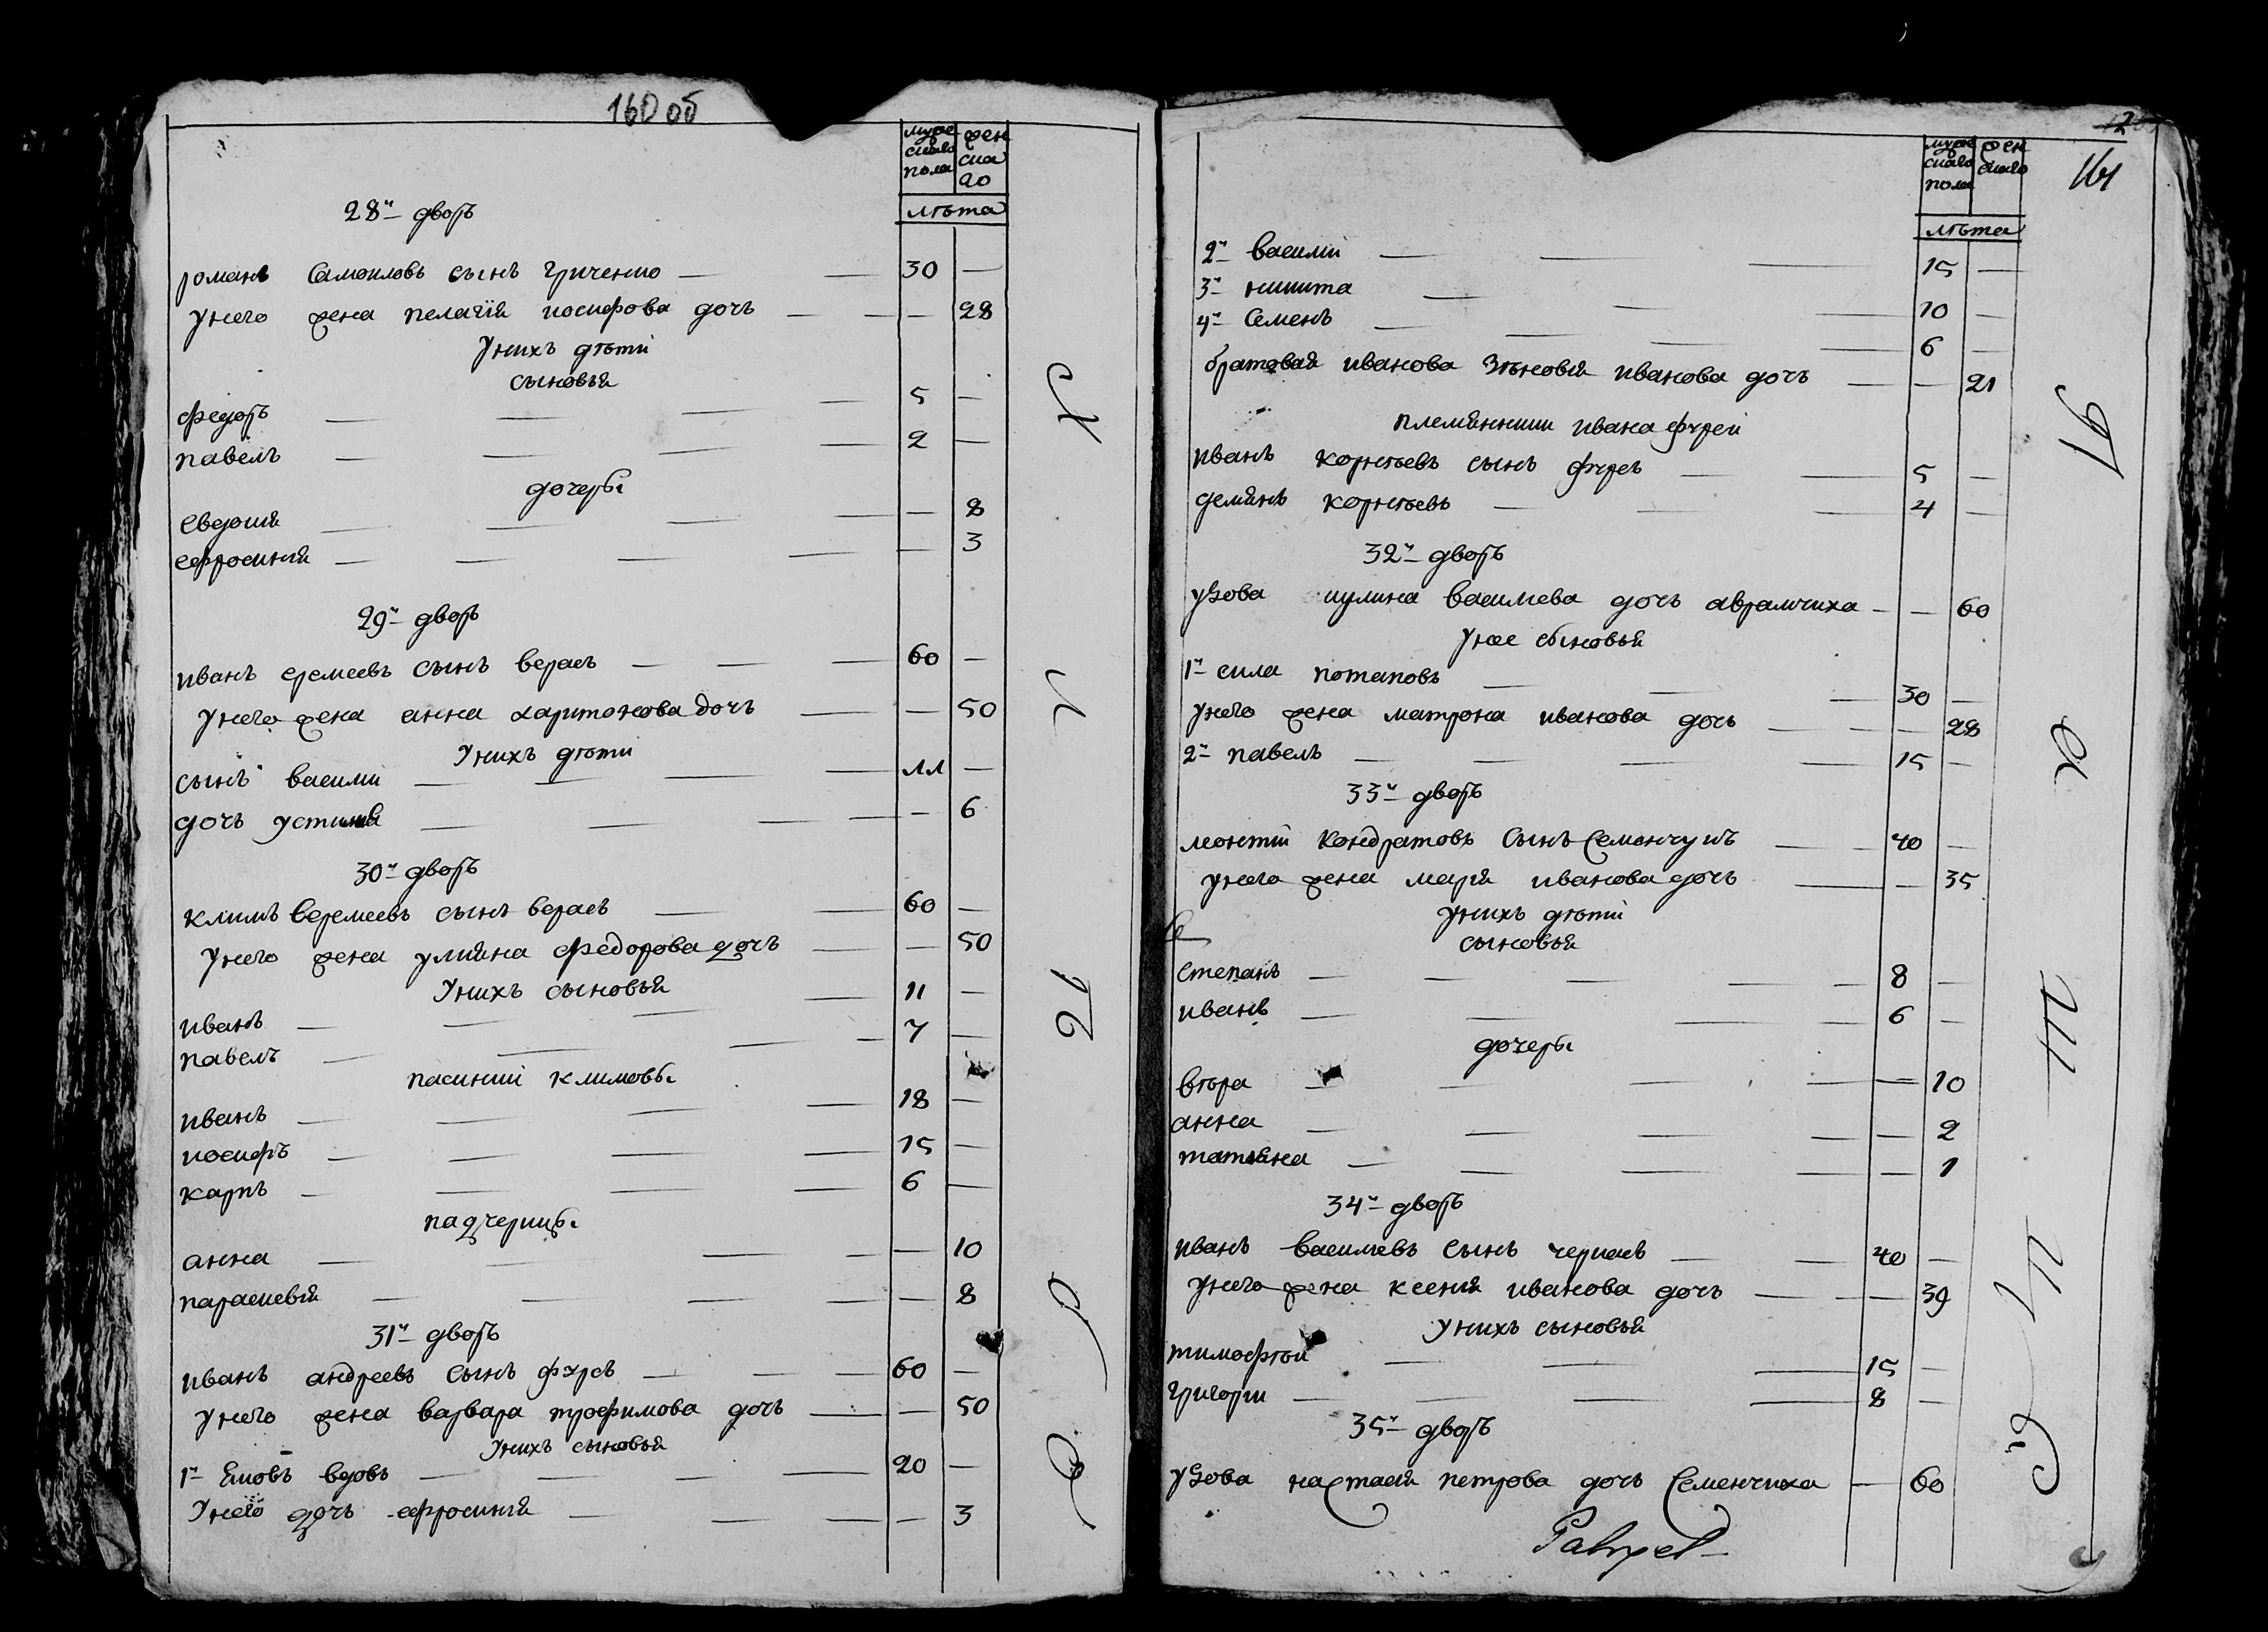 160 об
муже скаго пола
жен ска го
лѣта
28й дворъ
романъ Самоиловъ сынъ Гриченко — 30 —
унего жена пелагія иосифова дочь — — 28
Унихъ дѣти
сыновья
Федоръ — 5 —
павелъ — 2 —
дочеры
Евдокия — — 8
ефросинія — — 3
29й дворъ
иванъ еремеевъ сынъ верасъ — 60 —
унего жена анна харитонова дочъ — — 50
Унихъ дѣти
сынъ василии — 11 —
дочъ устинія — — 6
30й дворъ
климъ веремеевъ сынъ верасъ — 60 —
унего жена улияна Федорова дочъ — — 50
Унихъ сыновья
иванъ — 11 —
павелъ — 7 —
пасинки климовы
иванъ — 18 —
иосифъ — 15 —
карпъ — 6 —
падчерицы
анна — — 10
параскевія — — 8
31й дворъ
иванъ андреевъ сынъ фурсъ — 60 —
унего жена варвара трофимова дочъ — — 50
Унихъ сыновья
1й Яковъ вдовъ — 20 —
Унего дочъ ефросинія — — 3
161
муже скаго пола
жен скаго
лѣта
2й василіи — 15 —
3й никита — 10 —
4й Семенъ — 6 —
братовая иванова Зѣновія иванова дочъ — — 21
племянники ивана фурси
иванъ корнѣевъ сынъ фурсъ — 5 —
демянъ корнѣевъ — 4 —
32й дворъ
удова акулина василиева дочъ аврамчиха — — 60
Унее сыновья
1й сила потаповъ — 30 —
унего жена матрона иванова дочъ — — 28
2й павелъ — 15 —
33й дворъ
леонтіи кондратовъ сынъ Семенчукъ — 40 —
унего жена марія иванова дочъ — — 35
унихъ дѣти
сыновья
Степанъ — 8 —
иванъ — 6 —
дочеры
вѣра — — 10
анна — — 2
татияна — — 1
34й дворъ
иванъ василиевъ сынъ черкасъ — 40 —
унего жена ксенія иванова дочъ — — 39
Унихъ сыновья
тимофѣи — 15 —
григории — 8 —
35й дворъ
удова настасия петрова дочъ Семенчиха — 60